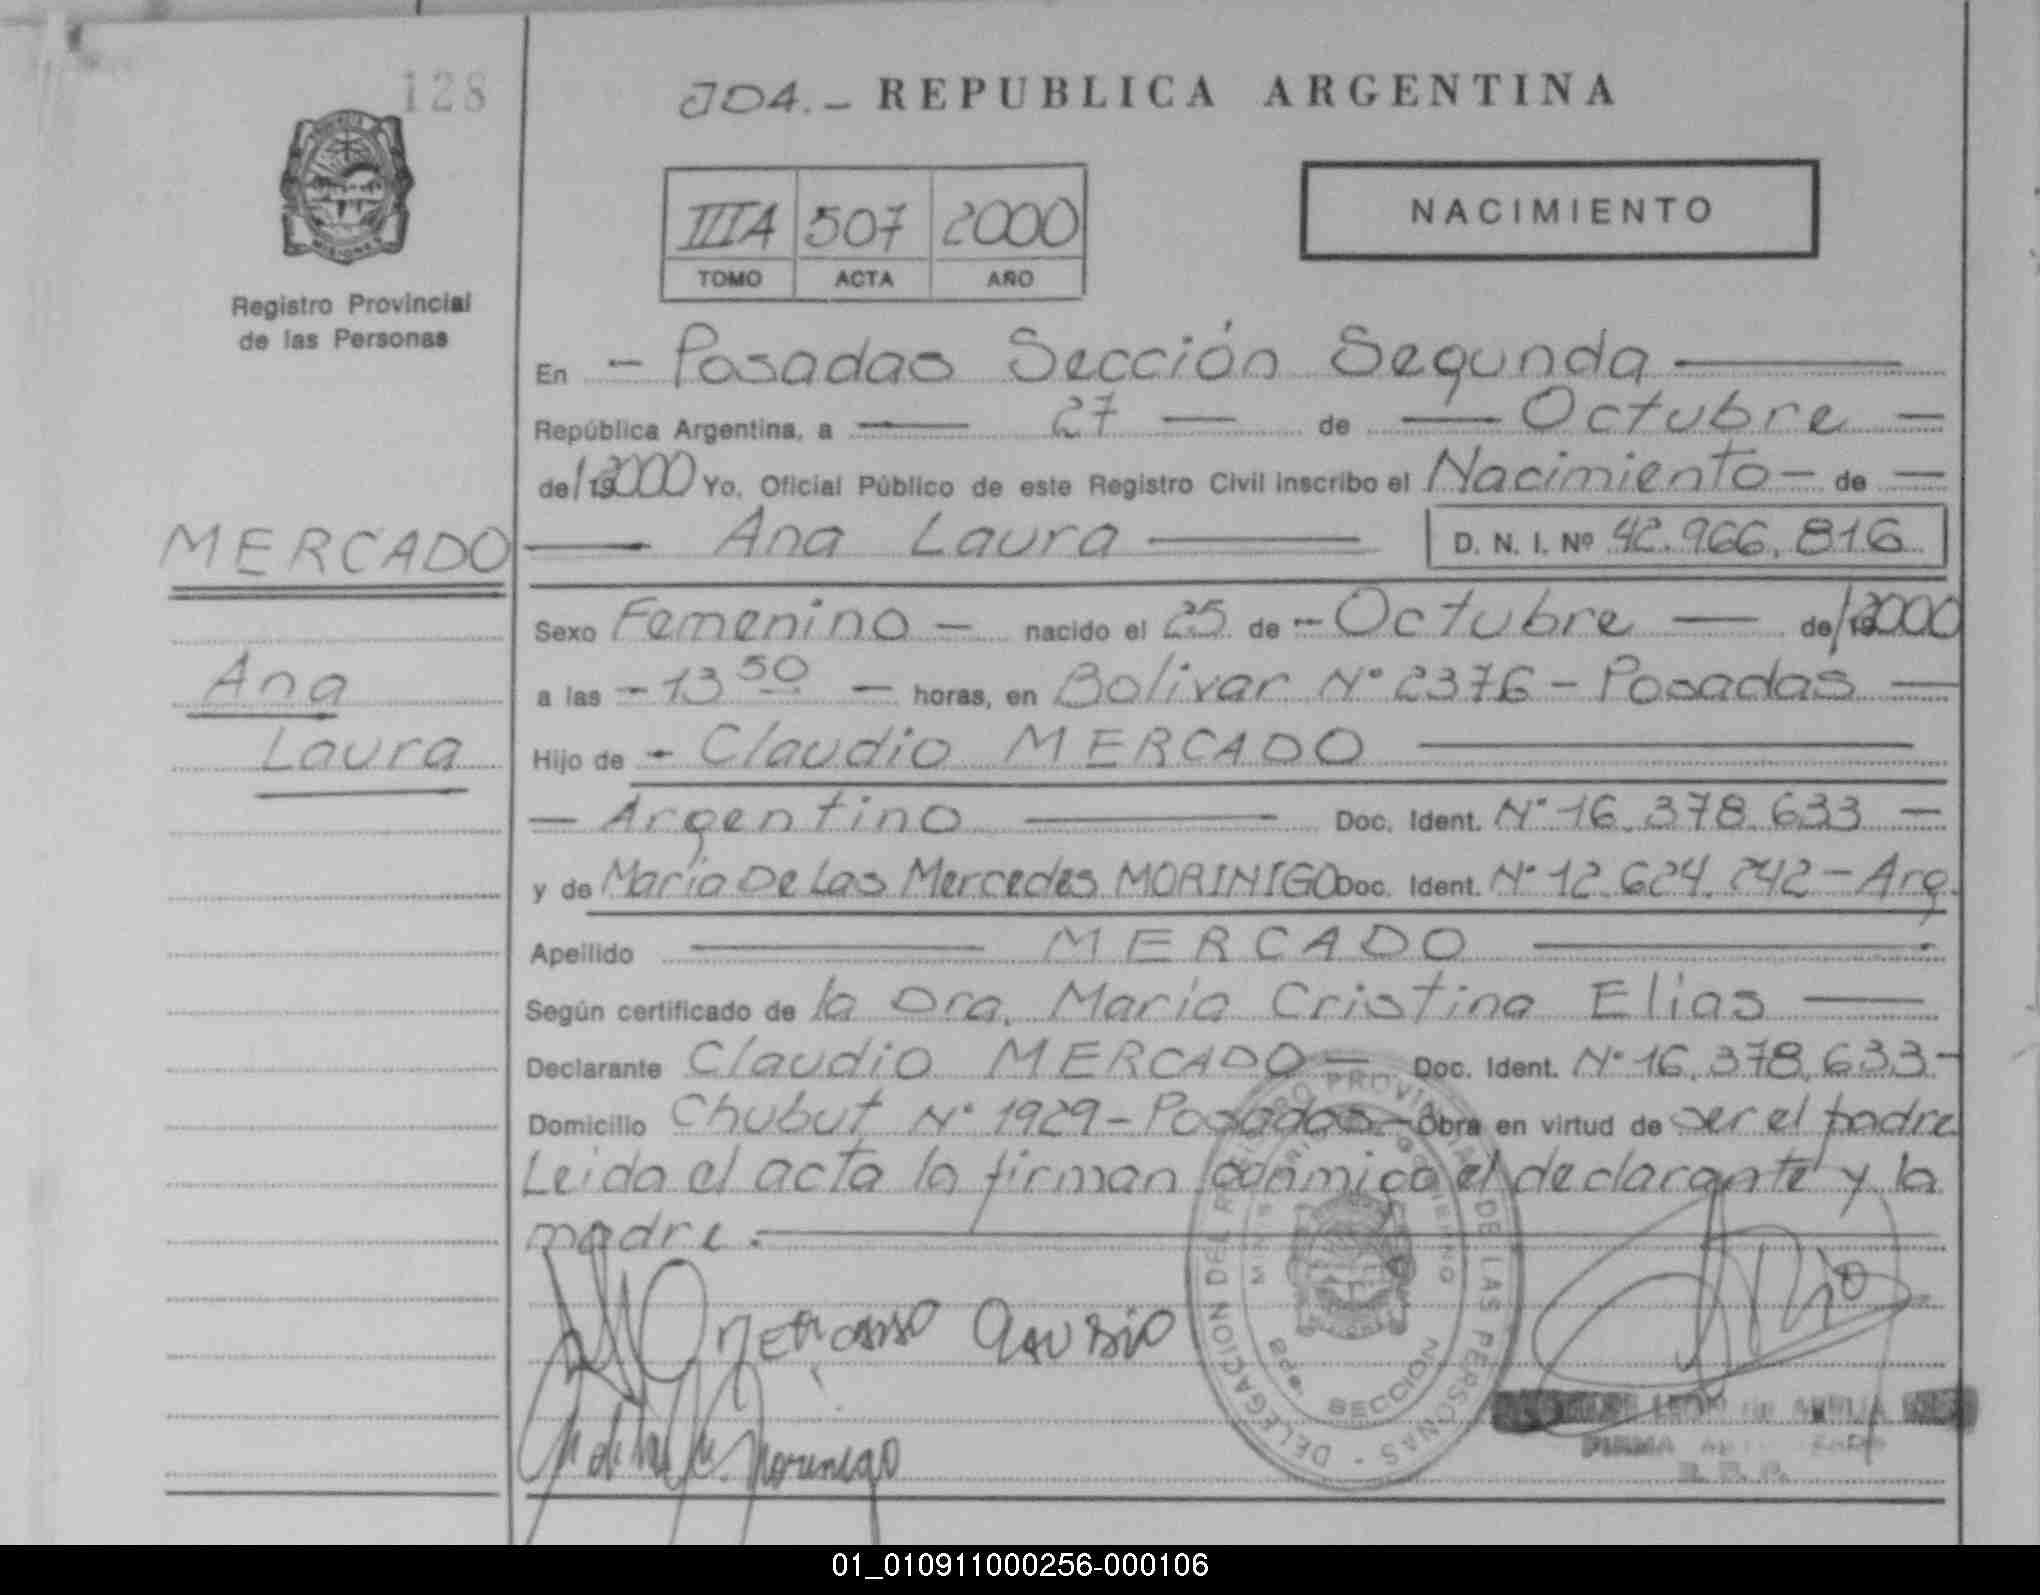 128
104.- REPUBLICA ARGENTINA
IIIA 507 2000
TOMO ACTA AÑO
NACIMIENTO
Registro Provincial
de las Personas
En - Posadas Sección Segunda
República Argentina, a 27 de Octubre
de/192000 Yo, Oficial Público de este Registro Civil inscribo el Nacimiento - de
MERCADO
Ana Laura D. N. I. Nº 42.966.816
Sexo Femenino - nacido el 25 de - Octubre de/192000
Ana
a las - 13 50 - horas, en Bolivar Nº 2376 - Posadas
Laura
Hijo de - Claudio MERCADO
Argentino Doc. Ident. Nº 16.378.633 -
y de Maria De Las Mercedes MORINIGO Doc. Ident. Nº 12.624.242 - Arg.
Apellido MERCADO
Según certificado de la Dra. Maria Cristina Elias
Declarante Claudio MERCADO - Doc. Ident. Nº 16.378.633 -
Domicilio Chubut Nº 1929 - Posadas - Obra en virtud de ser el padre
Leida el acta la firman conmigo el declarante y la
madre.
DELEGACION DEL REGISTRO PROVINCIAL DE LAS PERSONAS
MINISTERIO GOBIERNO
2da. SECCION
Morinigo
FIRMA
R. P. P.
01_010911000256-000106